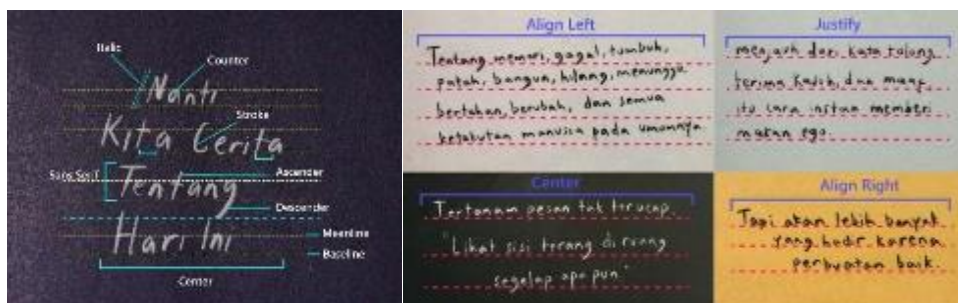 Italic
Counter
Nanti
Stroke
Kita Cerita
Sans Serif
Ascender
Tentang
Descender
Hari Ini
Meanline
Baseline
Center
Align Left
Tentang memori, gagal, tumbuh,
patah, bangun, hilang, menunggu
bertahan, berubah, dan semua
ketakutan manusia pada umumnya
Justify
menjauh dari kata tolong
terima kasih, dan maaf,
itu cara instan memberi
makan ego.
Center
Tertanam pesan tak terucap.
"Lihat sisi terang di ruang
segelap apa pun"
Align Right
Tapi akan lebih banyak
yang hadir karena
perbuatan baik.